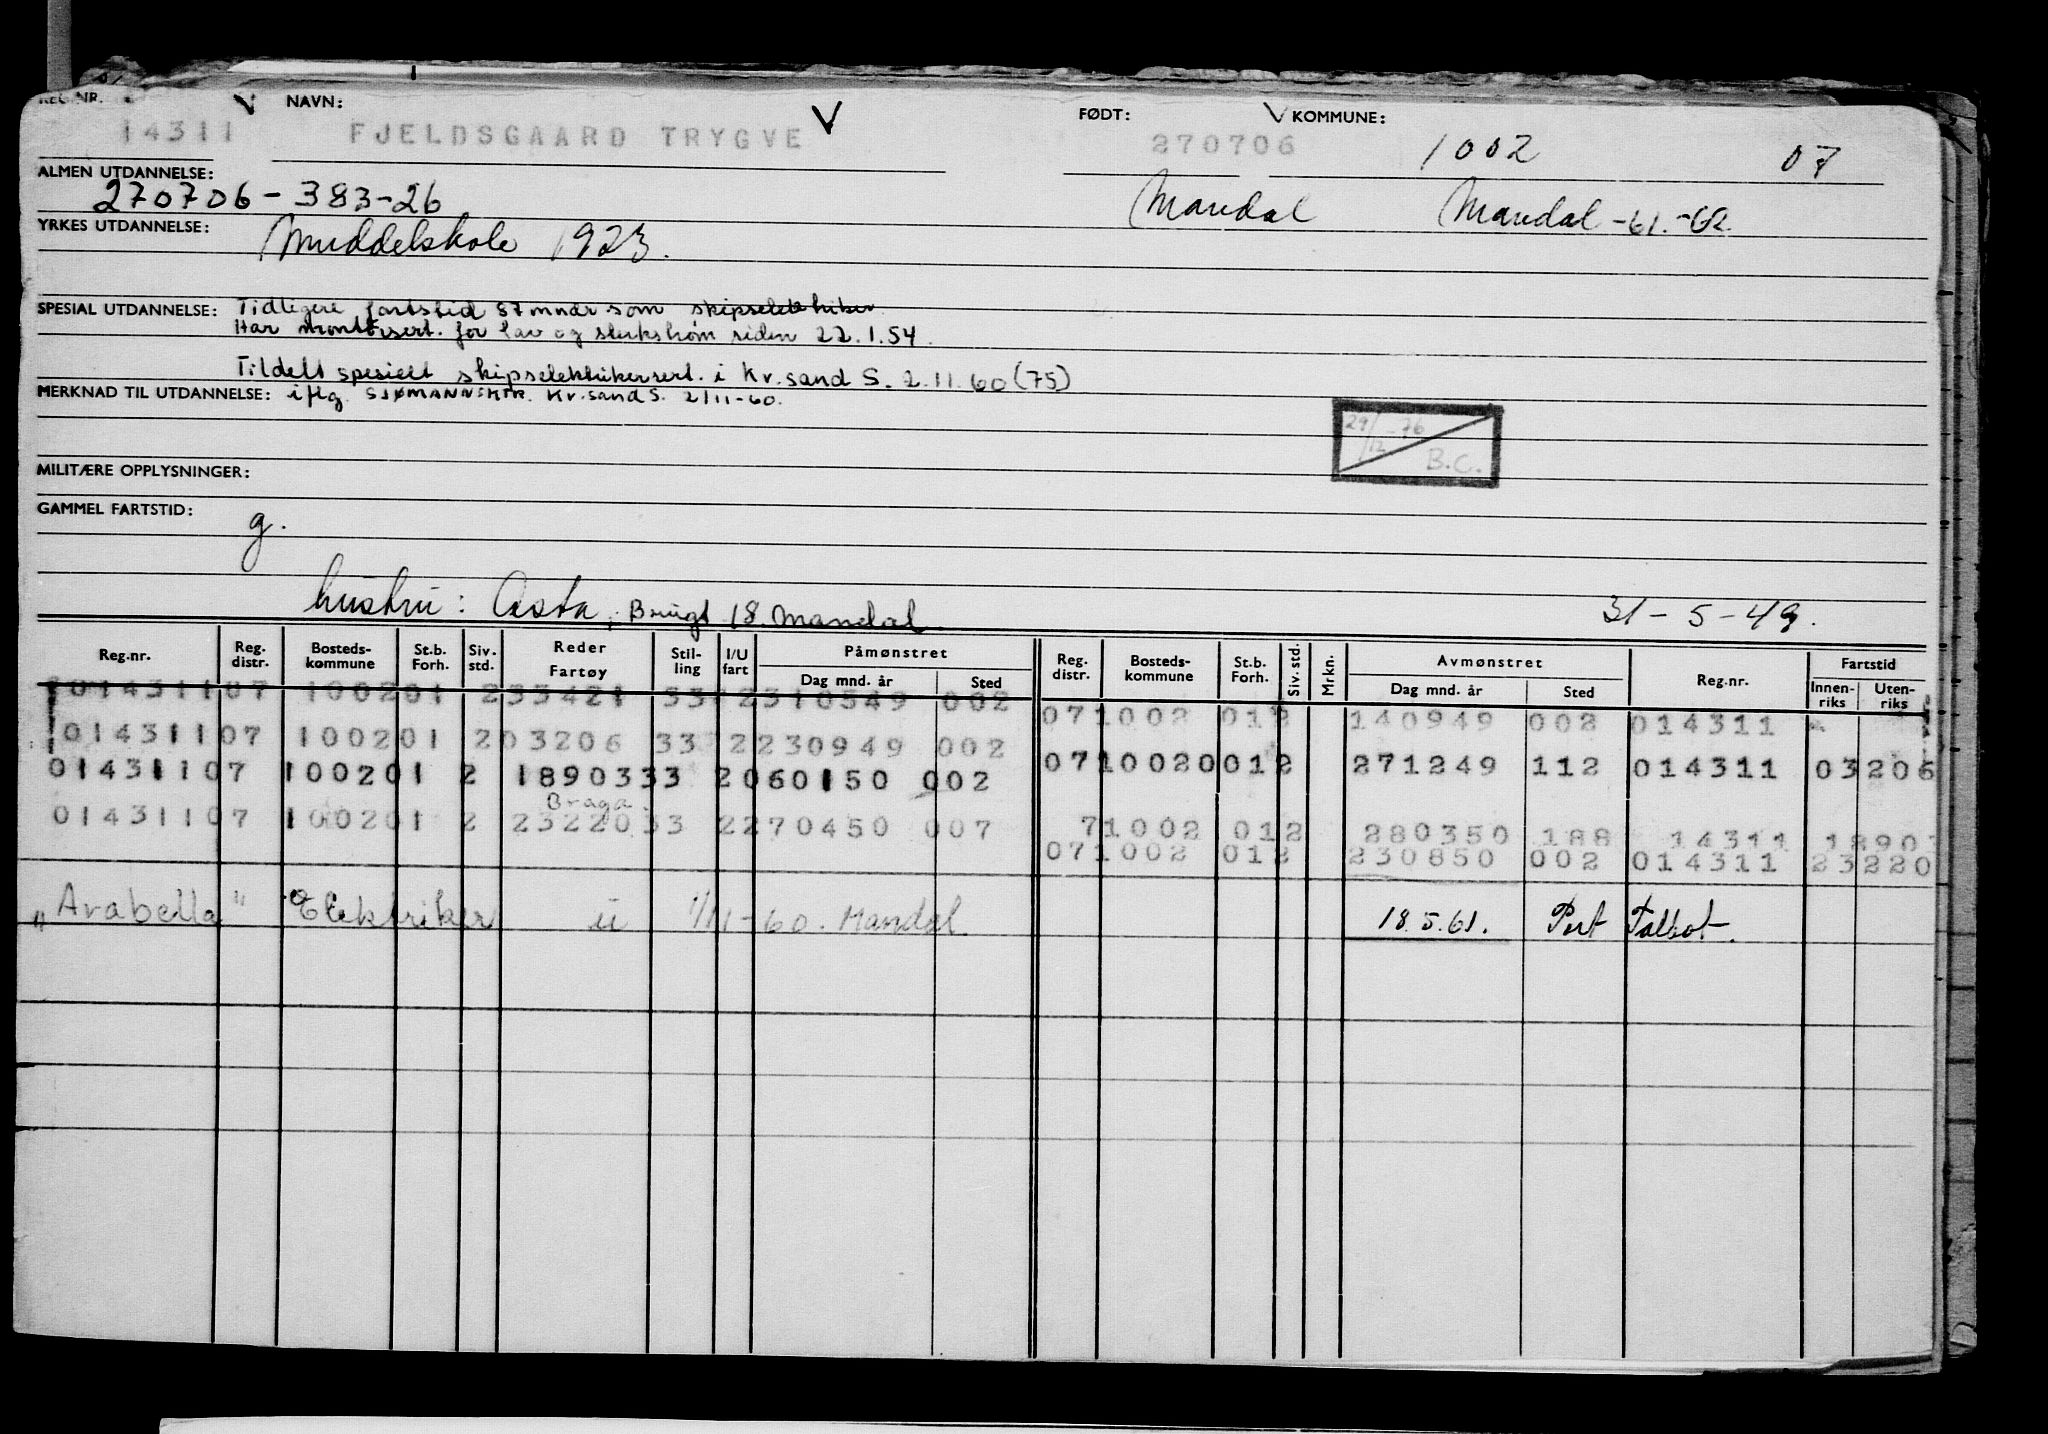 REG.NR. NAVN: FØDT: KOMMUNE:
14311 FJELDSGAARD TRYGVE 270706 1002 07
ALMEN UTDANNELSE:
270706-383-26 Mandal Mandal -61.-62
YRKES UTDANNELSE: Middelskole 1923.
SPESIAL UTDANNELSE: Tidligere fartstid 87 mndr som skipselektriker
Har montørsert. for lav og sterkstrøm siden 22.1.54.
Tildelt spesielt skipselektrikersert. i Kr.sand S. 2.11.60 (75)
MERKNAD TIL UTDANNELSE: iflg. SJØMANNSKTR. Kr.sand S. 2/11-60.
29/12-76
B.C.
MILITÆRE OPPLYSNINGER:
GAMMEL FARTSTID: g.
hustru: Asta, Brugt 18. Mandal 31-5-49.
Reg.nr. Reg. distr. Bosteds-kommune St.b. Forh. Siv. std. Reder Fartøy Stil-ling I/U fart Påmønstret Dag mnd. år Sted Reg. distr. Bosteds-kommune St.b. Forh. Siv. std. Mrkn. Avmønstret Dag mnd. år Sted Reg.nr. Fartstid Innen-riks Uten-riks
014311 07 1002 01 2 33421 33 2 310549 002
07 1002 01 2 140949 002 014311
014311 07 1002 01 2 03206 33 2 230949 002
07 1002 001 2 271249 112 014311 03206
014311 07 1002 01 2 18903 33 2 060150 002
Braga.
014311 07 1002 01 2 23220 33 2 270450 007
7 1002 01 2 280350 188 14311 1890
07 1002 01 2 230850 002 014311 23220
"Arabella" Elektriker u 1/11-60. Mandal. 18.5.61. Port Talbot.